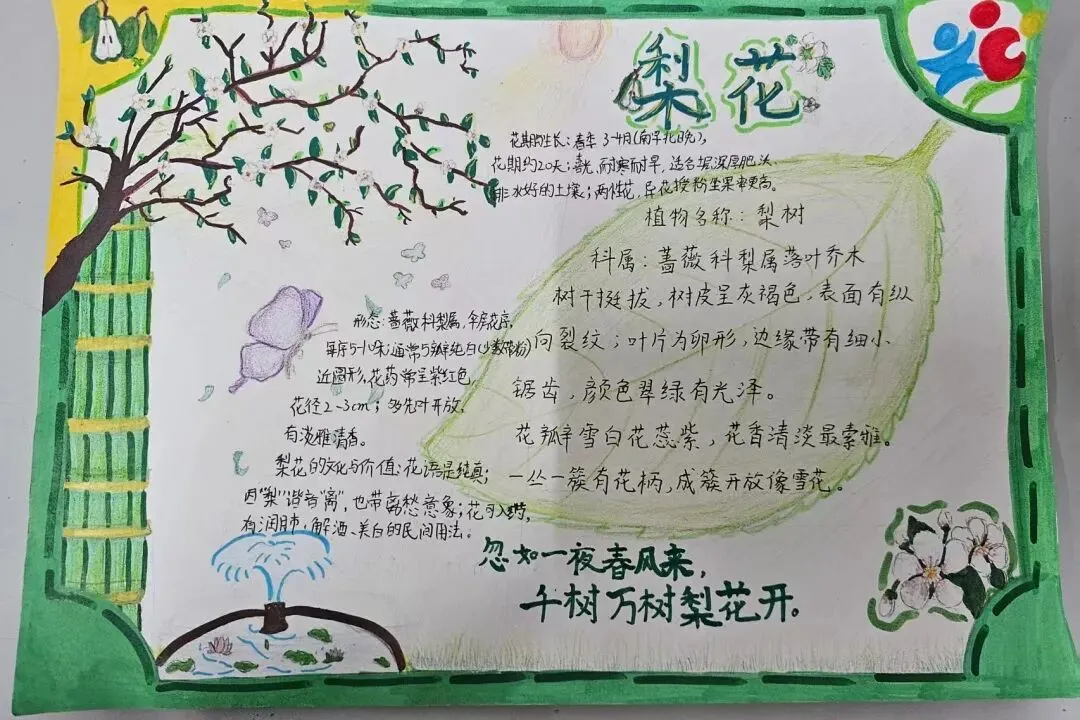 梨花
花期与生长：春季3-4月(南早北晚)，
花期约20天；喜光,耐寒耐旱，适合土层深厚肥沃、
排水好的土壤；两性花，异花授粉坐果率更高。
植物名称：梨树
科属：蔷薇科梨属落叶乔木
树干挺拔，树皮呈灰褐色，表面有纵
向裂纹；叶片为卵形，边缘带有细小
锯齿，颜色翠绿有光泽。
花瓣雪白花蕊紫，花香清淡最素雅。
一丛一簇有花柄，成簇开放像雪花。
形态：蔷薇科梨属，伞房花序，
每序5-10朵；通常5瓣纯白(少数带粉)
近圆形，花药常呈紫红色，
花径2-3cm；多先叶开放，
有淡雅清香。
梨花的文化与价值：花语是纯真；
因“梨”谐音“离”，也带离愁意象；花可入药，
有润肺、解酒、美白的民间用法。
忽如一夜春风来，
千树万树梨花开。